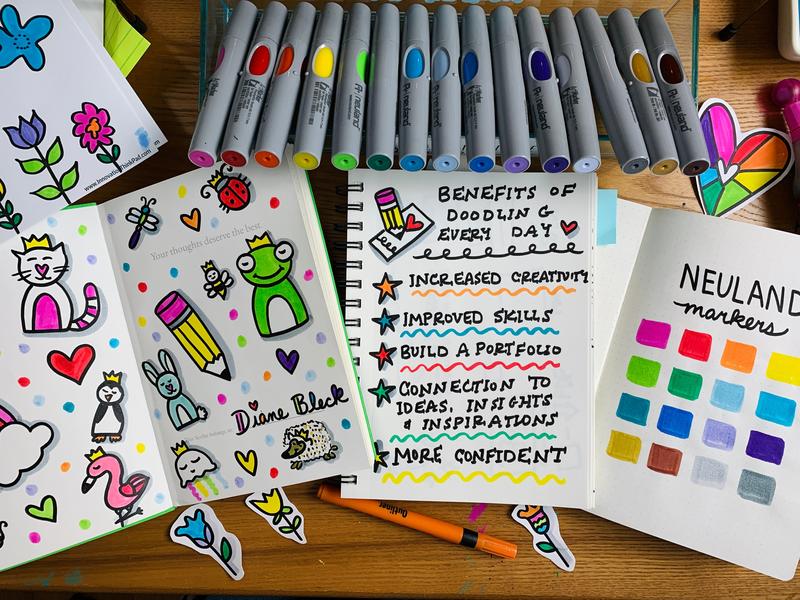 www.InnovationThinkPad.com
Your thoughts deserve the best.
Diane Bleck
BENEFITS OF
DOODLING
EVERY DAY
INCREASED CREATIVITY
IMPROVED SKILLS
BUILD A PORTFOLIO
CONNECTION TO
IDEAS, INSIGHTS
& INSPIRATIONS
MORE CONFIDENT
NEULAND
markers
Outliner
neuland
neuland
neuland
neuland